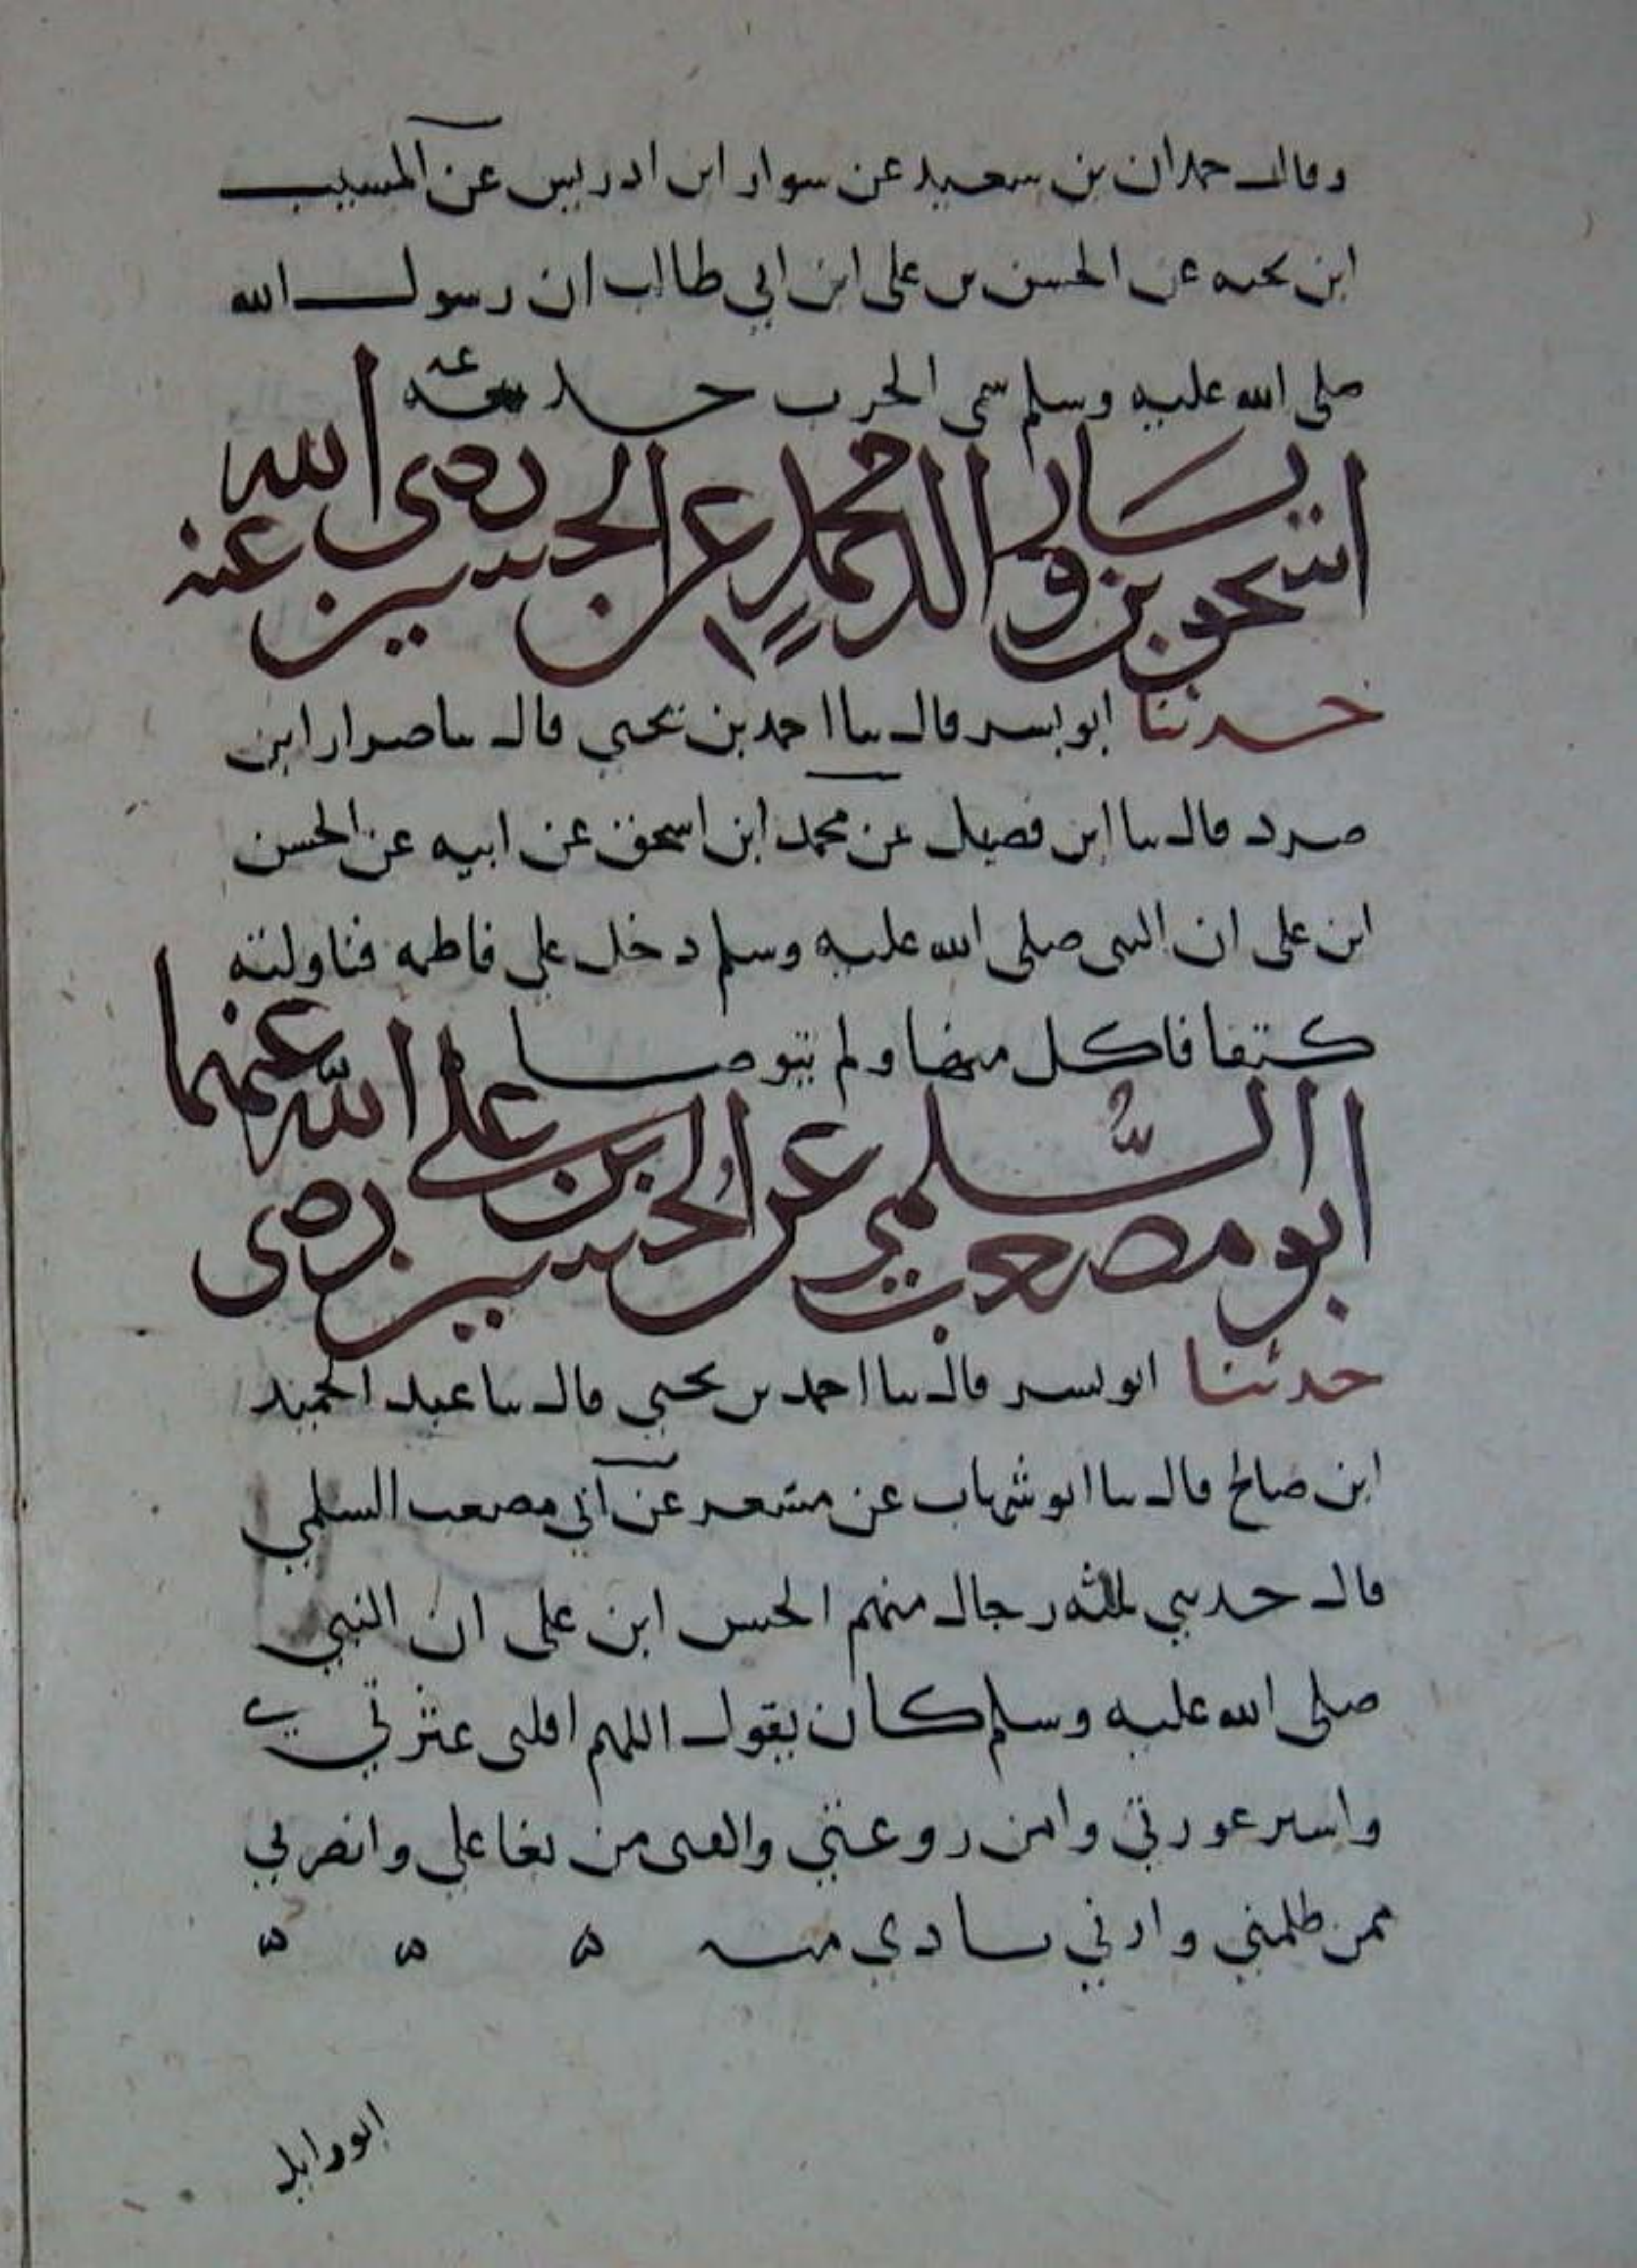 وقال حمدان بن سعيد عن سوار ابن ادريس عن المسيب
ابن نجبه عن الحسن بن علي ابن ابي طالب ان رسول الله
صلى الله عليه وسلم سمى الحرب خدعه
اسحق بن يسار والد محمد عن الحسين رضى الله عنه
حدثنا ابو بسر قال سا احمد بن يحيى قال سا ضرار ابن
صرد قال سا ابن فضيل عن محمد ابن اسحق عن ابيه عن الحسن
ابن على ان النبى صلى الله عليه وسلم دخل على فاطمه فناولته
كتفا فاكل منها ولم يتوضا
ابو مصعب السلمي عن الحسين بن على رضى الله عنهما
حدثنا ابو بسر قال سا احمد بن يحيى قال سا عبد الحميد
ابن صالح قال سا ابو شهاب عن مسعر عن ابي مصعب السلمي
قال حدثني ثلثه رجال منهم الحسن ابن على ان النبي
صلى الله عليه وسلم كان يقول اللهم اقلنى عثرتي
واستر عورتي وامن روعتي واكفنى من بغا علي وانصرني
ممن ظلمني وارني ثاري منه ه ه ه
ابو وايل